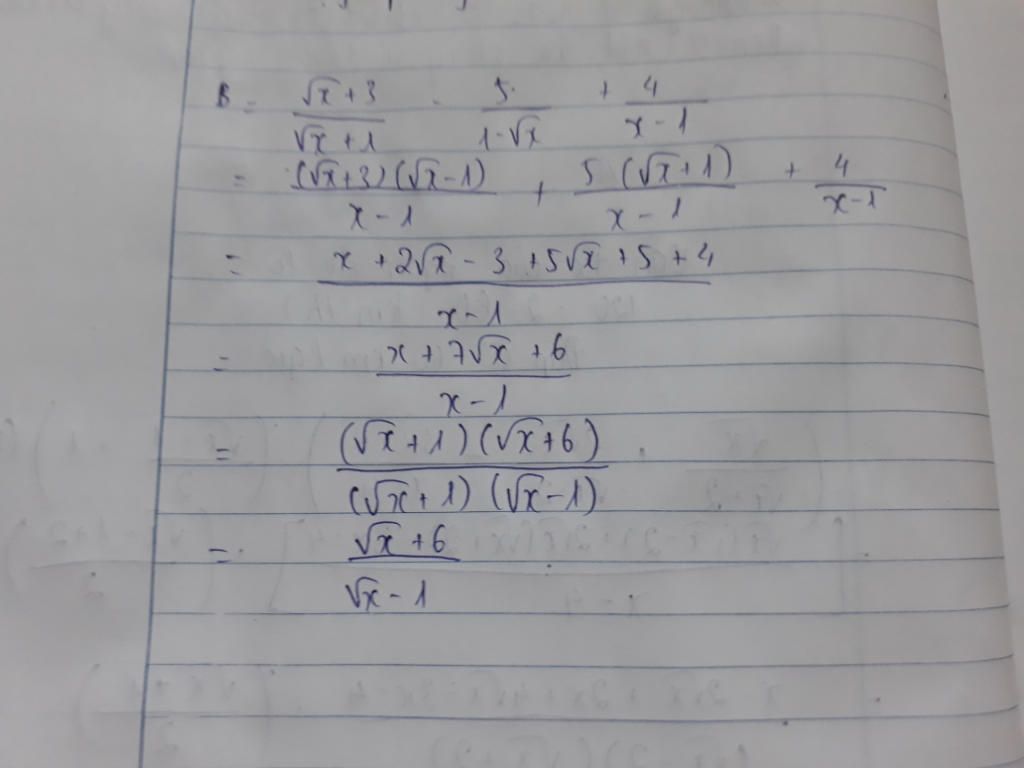 B = (√x + 3)/(√x + 1) - 5/(1 - √x) + 4/(x - 1)
= (√x+3)(√x-1)/(x - 1) + 5(√x+1)/(x - 1) + 4/(x-1)
= (x + 2√x - 3 + 5√x + 5 + 4)/(x - 1)
= (x + 7√x + 6)/(x - 1)
= (√x + 1)(√x+6)/(√x + 1)(√x - 1)
= (√x + 6)/(√x - 1)